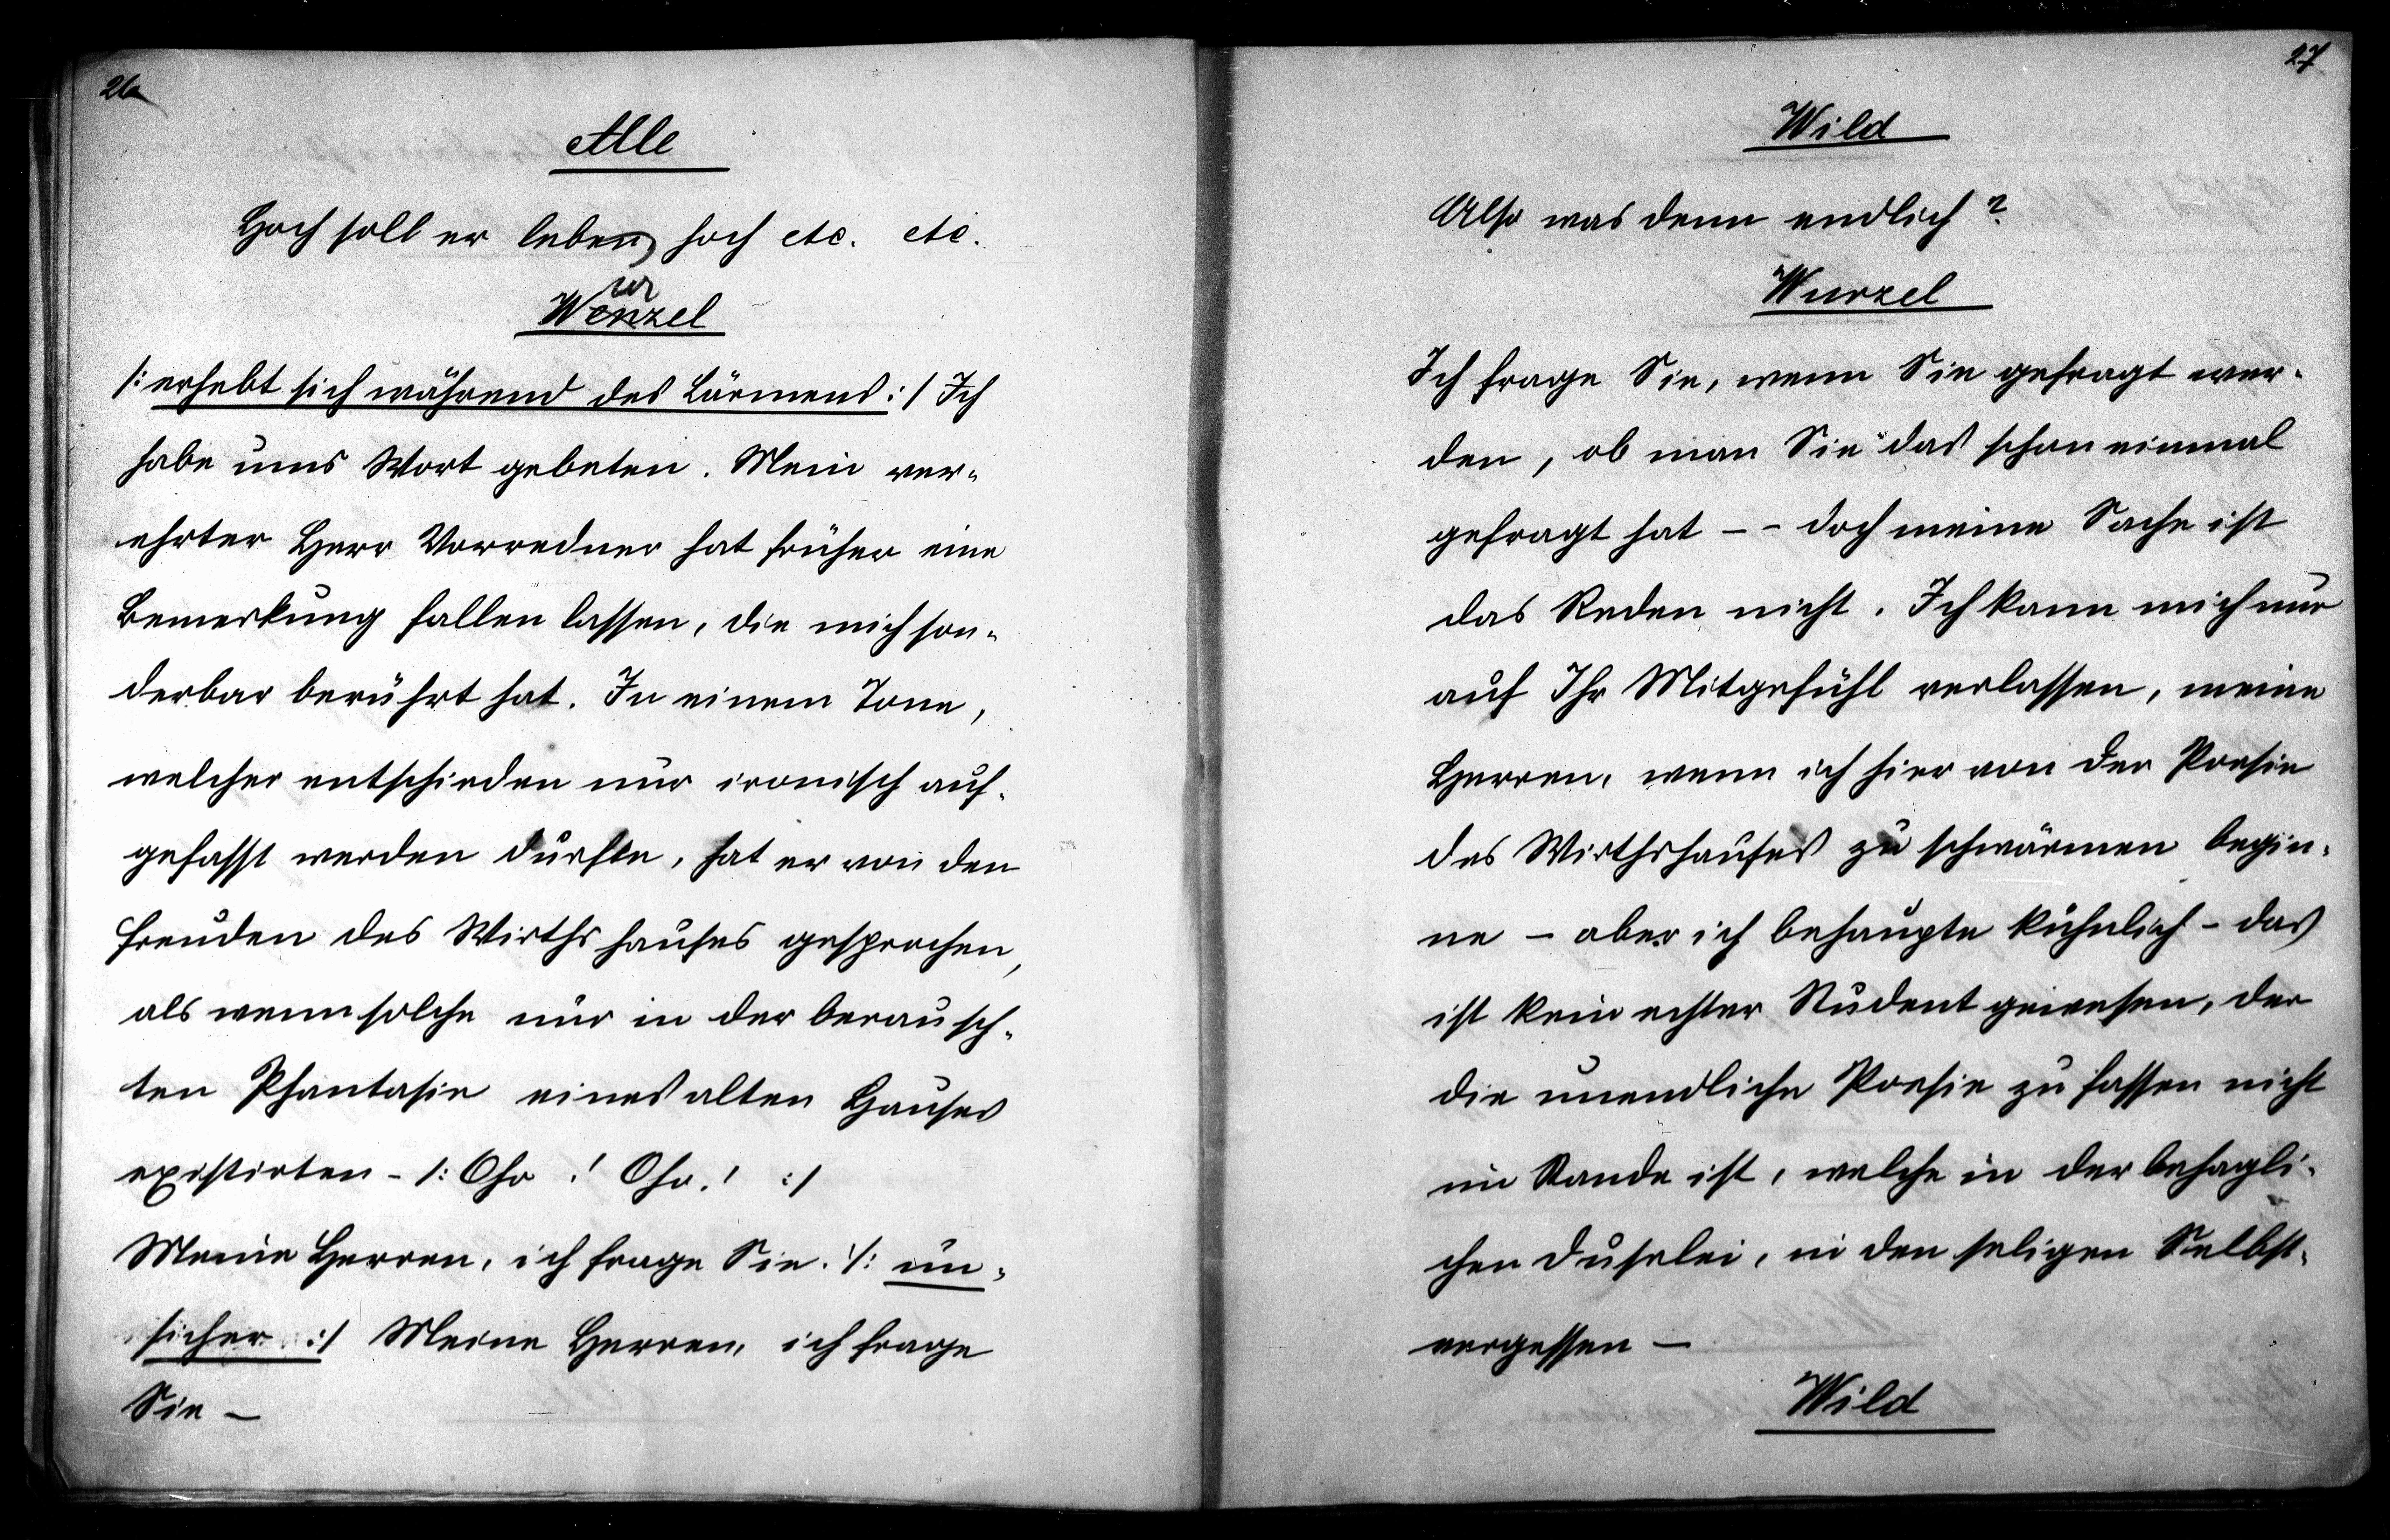 26
Alle
Hoch soll er leben, hoch etc. etc.
ur
Wenzel
/: erhebt sich während des Lärmens :/ Ich
habe ums Wort gebeten. Mein ver-
ehrter Herr Vorredner hat früher eine
Bemerkung fallen lassen, die mich son-
derbar berührt hat. In einem Tone,
welcher entschieden nur ironisch auf-
gefasst werden durfte, hat er von den
Freuden des Wirthshauses gesprochen,
als wenn solche nur in der berausch-
ten Phantasie eines alten Hauses
existirten - /: Oho! Oho! :/
Meine Herren, ich frage Sie. /: un-
sicher :/ Meine Herren, ich frage
Sie –
27
Wild
Also was denn endlich?
Wurzel
Ich frage Sie, wenn Sie gefragt wer-
den, ob man Sie das schon einmal
gefragt hat – – doch meine Sache ist
das Reden nicht. Ich kann mich nur
auf Ihr Mitgefühl verlassen, meine
Herren, wenn ich hier von der Poesie
des Wirthshauses zu schwärmen begin-
ne – aber ich behaupte kühnlich – das
ist kein echter Student gewesen, der
die unendliche Poesie zu fassen nicht
im Stande ist, welche in der behagli-
chen Duselei, in den seligen Selbst-
vergessen –
Wild